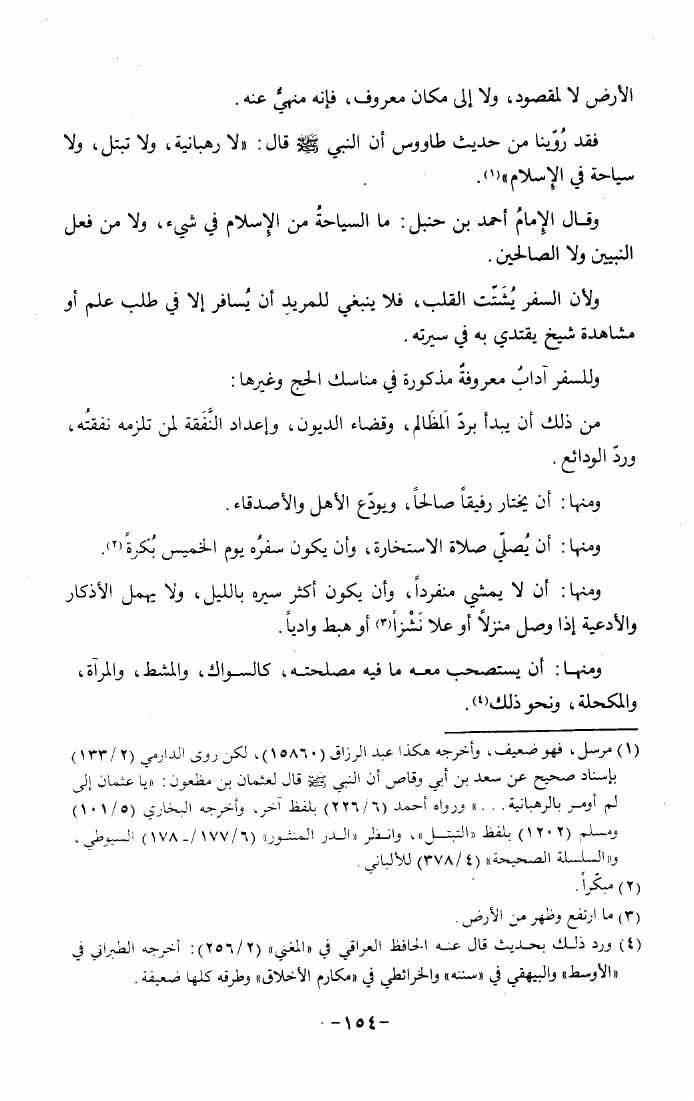 الأرض لا لمقصود، ولا إلى مكان معروف، فإنه منهيٌّ عنه.
فقد رُوّينا من حديث طاووس أن النبي ﷺ قال: «لا رهبانية، ولا تبتل، ولا
سياحة في الإسلام»(١).
وقال الإمامُ أحمد بن حنبل: ما السياحةُ من الإسلام في شيء، ولا من فعل
النبيين ولا الصالحين.
ولأن السفر يُشَتّت القلب، فلا ينبغي للمريدِ أن يُسافر إلا في طلب علم أو
مشاهدة شيخ يقتدي به في سيرته.
وللسفر آدابٌ معروفةٌ مذكورة في مناسك الحج وغيرها:
من ذلك أن يبدأ بردّ المَظَالم، وقضاء الديون، وإعداد النَّفَقة لمن تلزمه نفقتُه،
وردّ الودائع.
ومنها: أن يختار رفيقاً صالحاً، ويودّع الأهل والأصدقاء.
ومنها: أن يُصلّي صلاة الاستخارة، وأن يكون سفرُه يوم الخميس بُكرةً(٢).
ومنها: أن لا يمشي منفرداً، وأن يكون أكثر سيره بالليل، ولا يهمل الأذكار
والأدعية إذا وصل منزلاً أو علا نَشْزاً(٣) أو هبط وادياً.
ومنها: أن يستصحب معه ما فيه مصلحته، كالسواك، والمشط، والمرآة،
والمكحلة، ونحو ذلك(٤).
(١) مرسل، فهو ضعيف، وأخرجه هكذا عبد الرزاق (١٥٨٦٠)، لكن روى الدارمي (١٣٣/٢)
بإسناد صحيح عن سعد بن أبي وقاص أن النبي ﷺ قال لعثمان بن مظعون: «يا عثمان إني
لم أومر بالرهبانية...» ورواه أحمد (٢٢٦/٦) بلفظ آخر، وأخرجه البخاري (١٠١/٥)
ومسلم (١٢٠٢) بلفظ «التبتل»، وانظر «الدر المنثور» (١٧٧/٦/ـ١٧٨) السيوطي،
و«السلسلة الصحيحة» (٣٧٨/٤) للألباني.
(٢) مبكّراً.
(٣) ما ارتفع وظهر من الأرض.
(٤) ورد ذلك بحديث قال عنه الحافظ العراقي في «المغني» (٢٥٦/٢): أخرجه الطبراني في
«الأوسط» والبيهقي في «سننه» والخرائطي في «مكارم الأخلاق» وطرقه كلها ضعيفة.
-١٥٤-